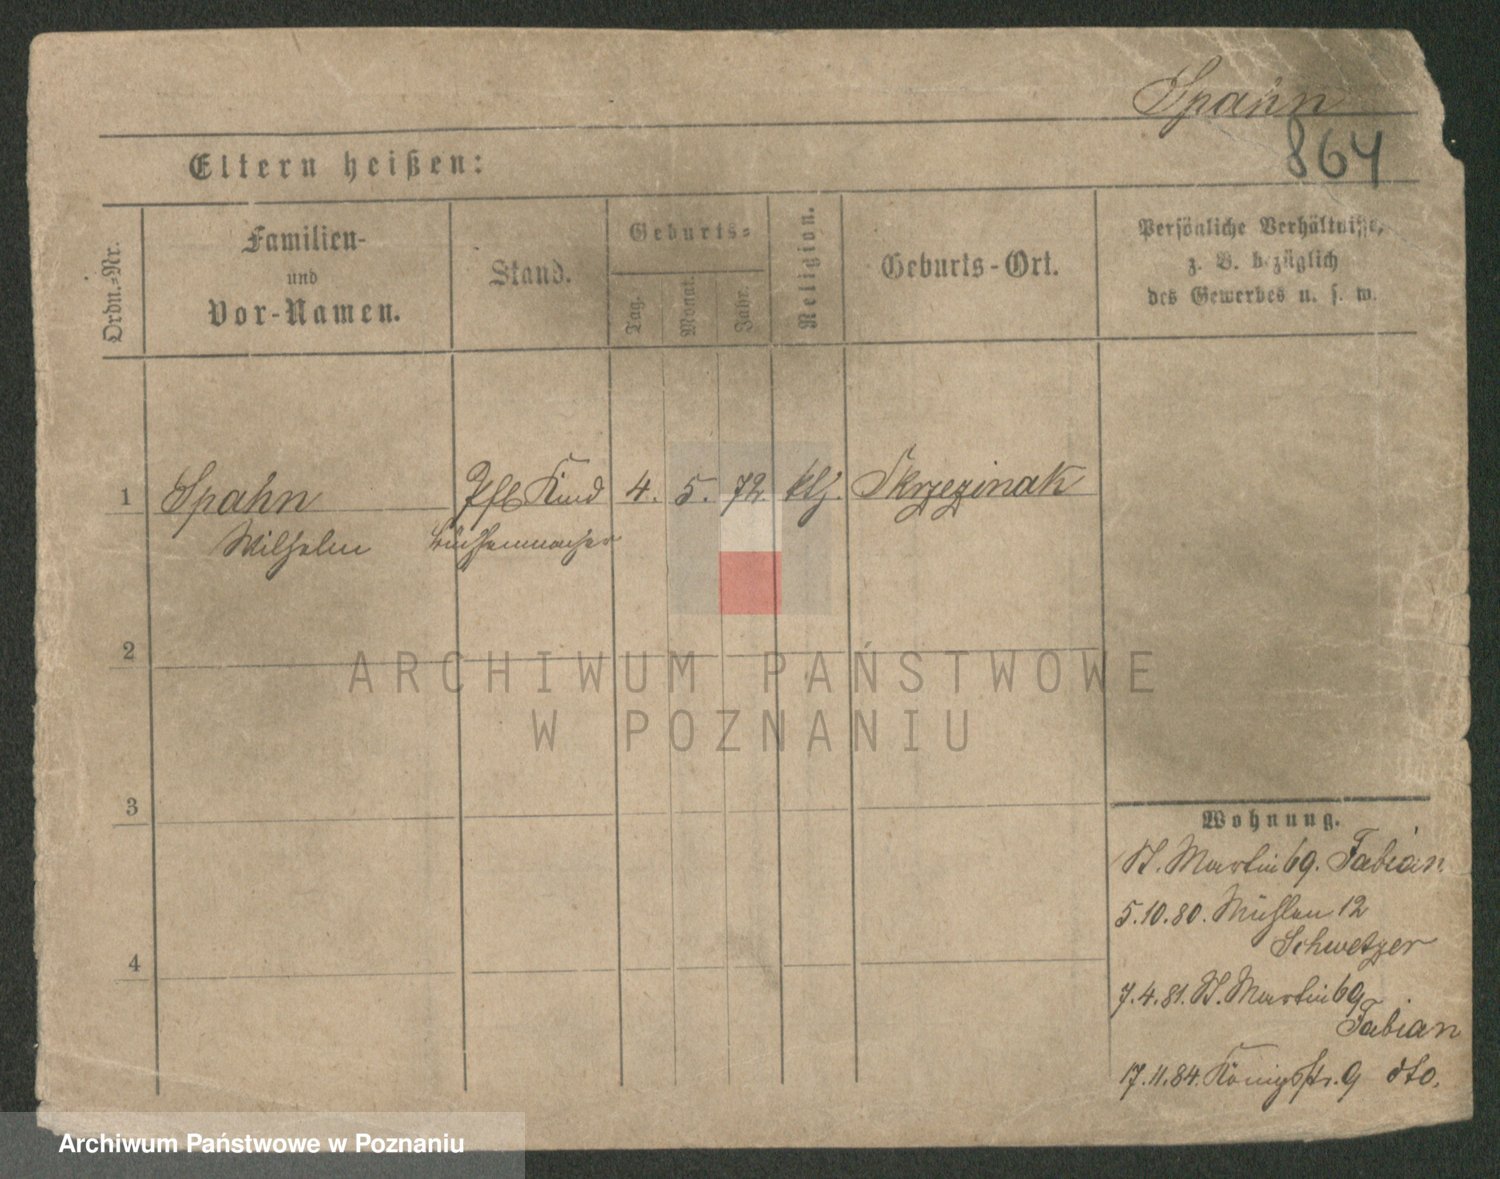 Spahn
864
Eltern heißen:
Ordn.-Nr.
Familien-
und
Vor-Namen.
Stand.
Geburts-
Tag.
Monat.
Jahr.
Religion.
Geburts-Ort.
Persönliche Verhältnisse,
z. B. bezüglich
des Gewerbes u. s. w.
1 Spahn Kind 4. 5. 72. Skrzezinak
Wilhelm Büchsenmacher
2
3
4
ARCHIWUM PAŃSTWOWE
W POZNANIU
Wohnung.
St. Martin 69. Fabian
5.10.80. Mühlen 12
Schwetzer
7.4.81. St. Martin 69
Fabian
17.11.84. Königsstr. 9 dto.
Archiwum Państwowe w Poznaniu